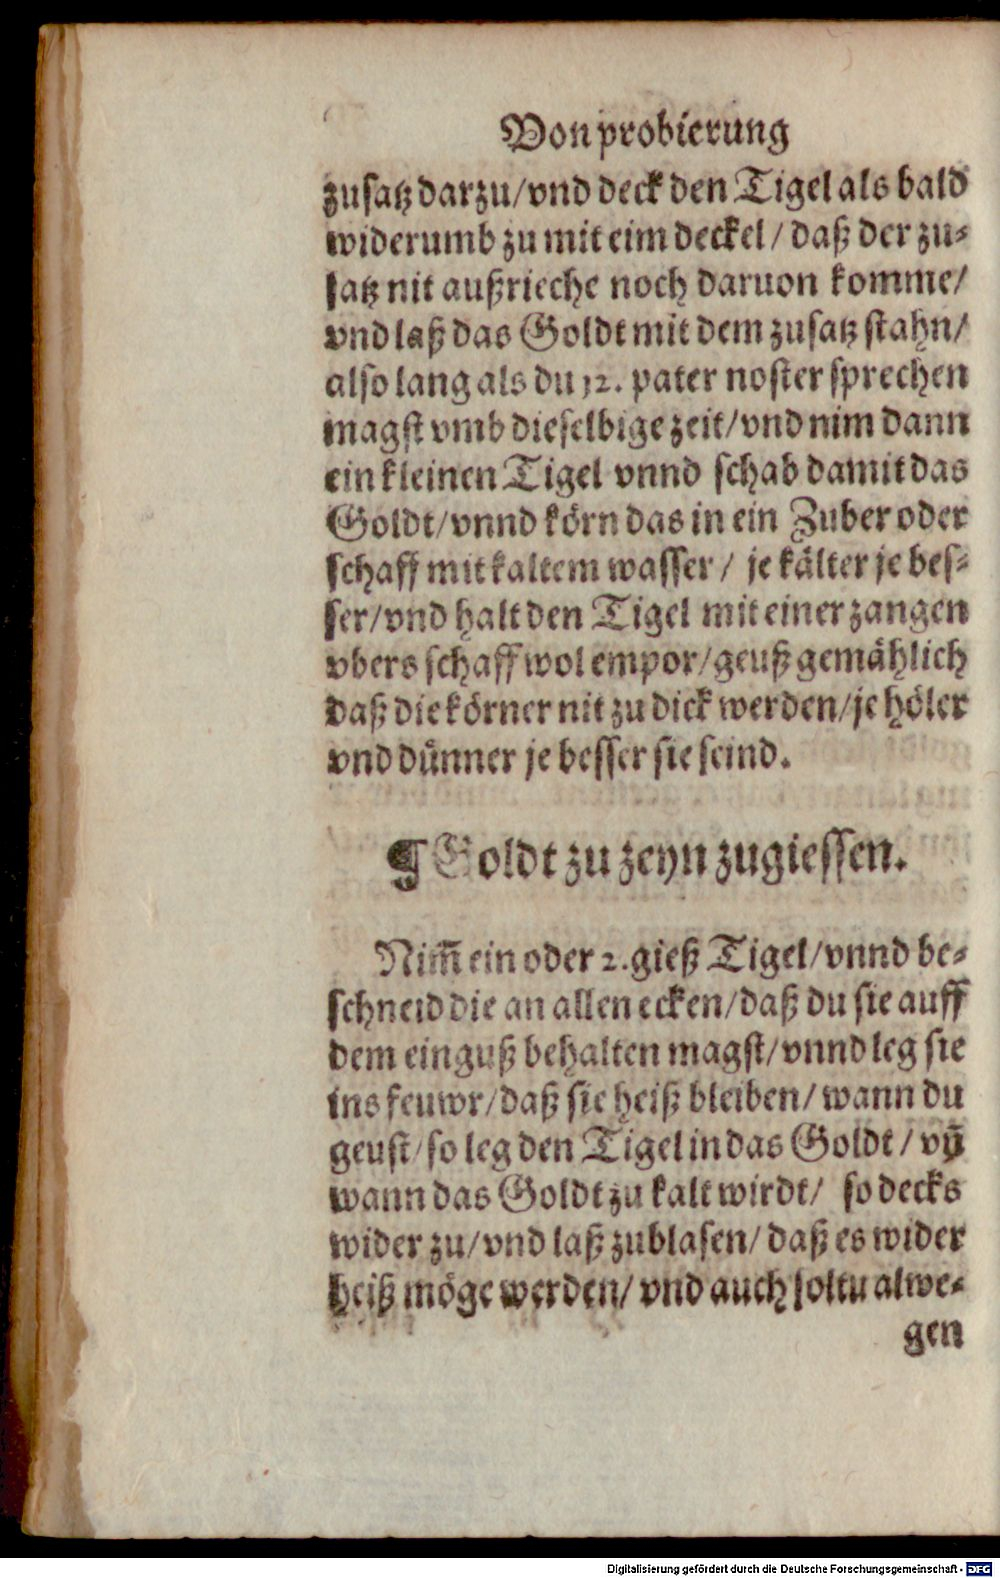 Von probierung
zusatz darzu/vnd deck den Tigel als bald
widerumb zu mit eim deckel/ daß der zu-
satz nit außrieche noch daruon komme/
vnd laß das Goldt mit dem zusatz stahn/
also lang als du 12. pater noster sprechen
magst vmb dieselbige zeit/vnd nim dann
ein kleinen Tigel vnnd schab damit das
Goldt/vnnd körn das in ein Zuber oder
schaff mit kaltem wasser/ je kälter je bes-
ser/vnd halt den Tigel mit einer zangen
vbers schaff wol empor/geuß gemählich
daß die körner nit zu dick werden/je höler
vnd dünner je besser sie seind.
¶ Goldt zu zeyn zugiessen.
Nim̃ ein oder 2. gieß Tigel/vnnd be-
schneid die an allen ecken/daß du sie auff
dem einguß behalten magst/vnnd leg sie
ins feuwr/daß sie heiß bleiben/ wann du
geust/so leg den Tigel in das Goldt/ vñ
wann das Goldt zu kalt wirdt/ so decks
wider zu/vnd laß zublasen/ daß es wider
heiß möge werden/ vnd auch soltu alwe-
gen
Digitalisierung gefördert durch die Deutsche Forschungsgemeinschaft - DFG